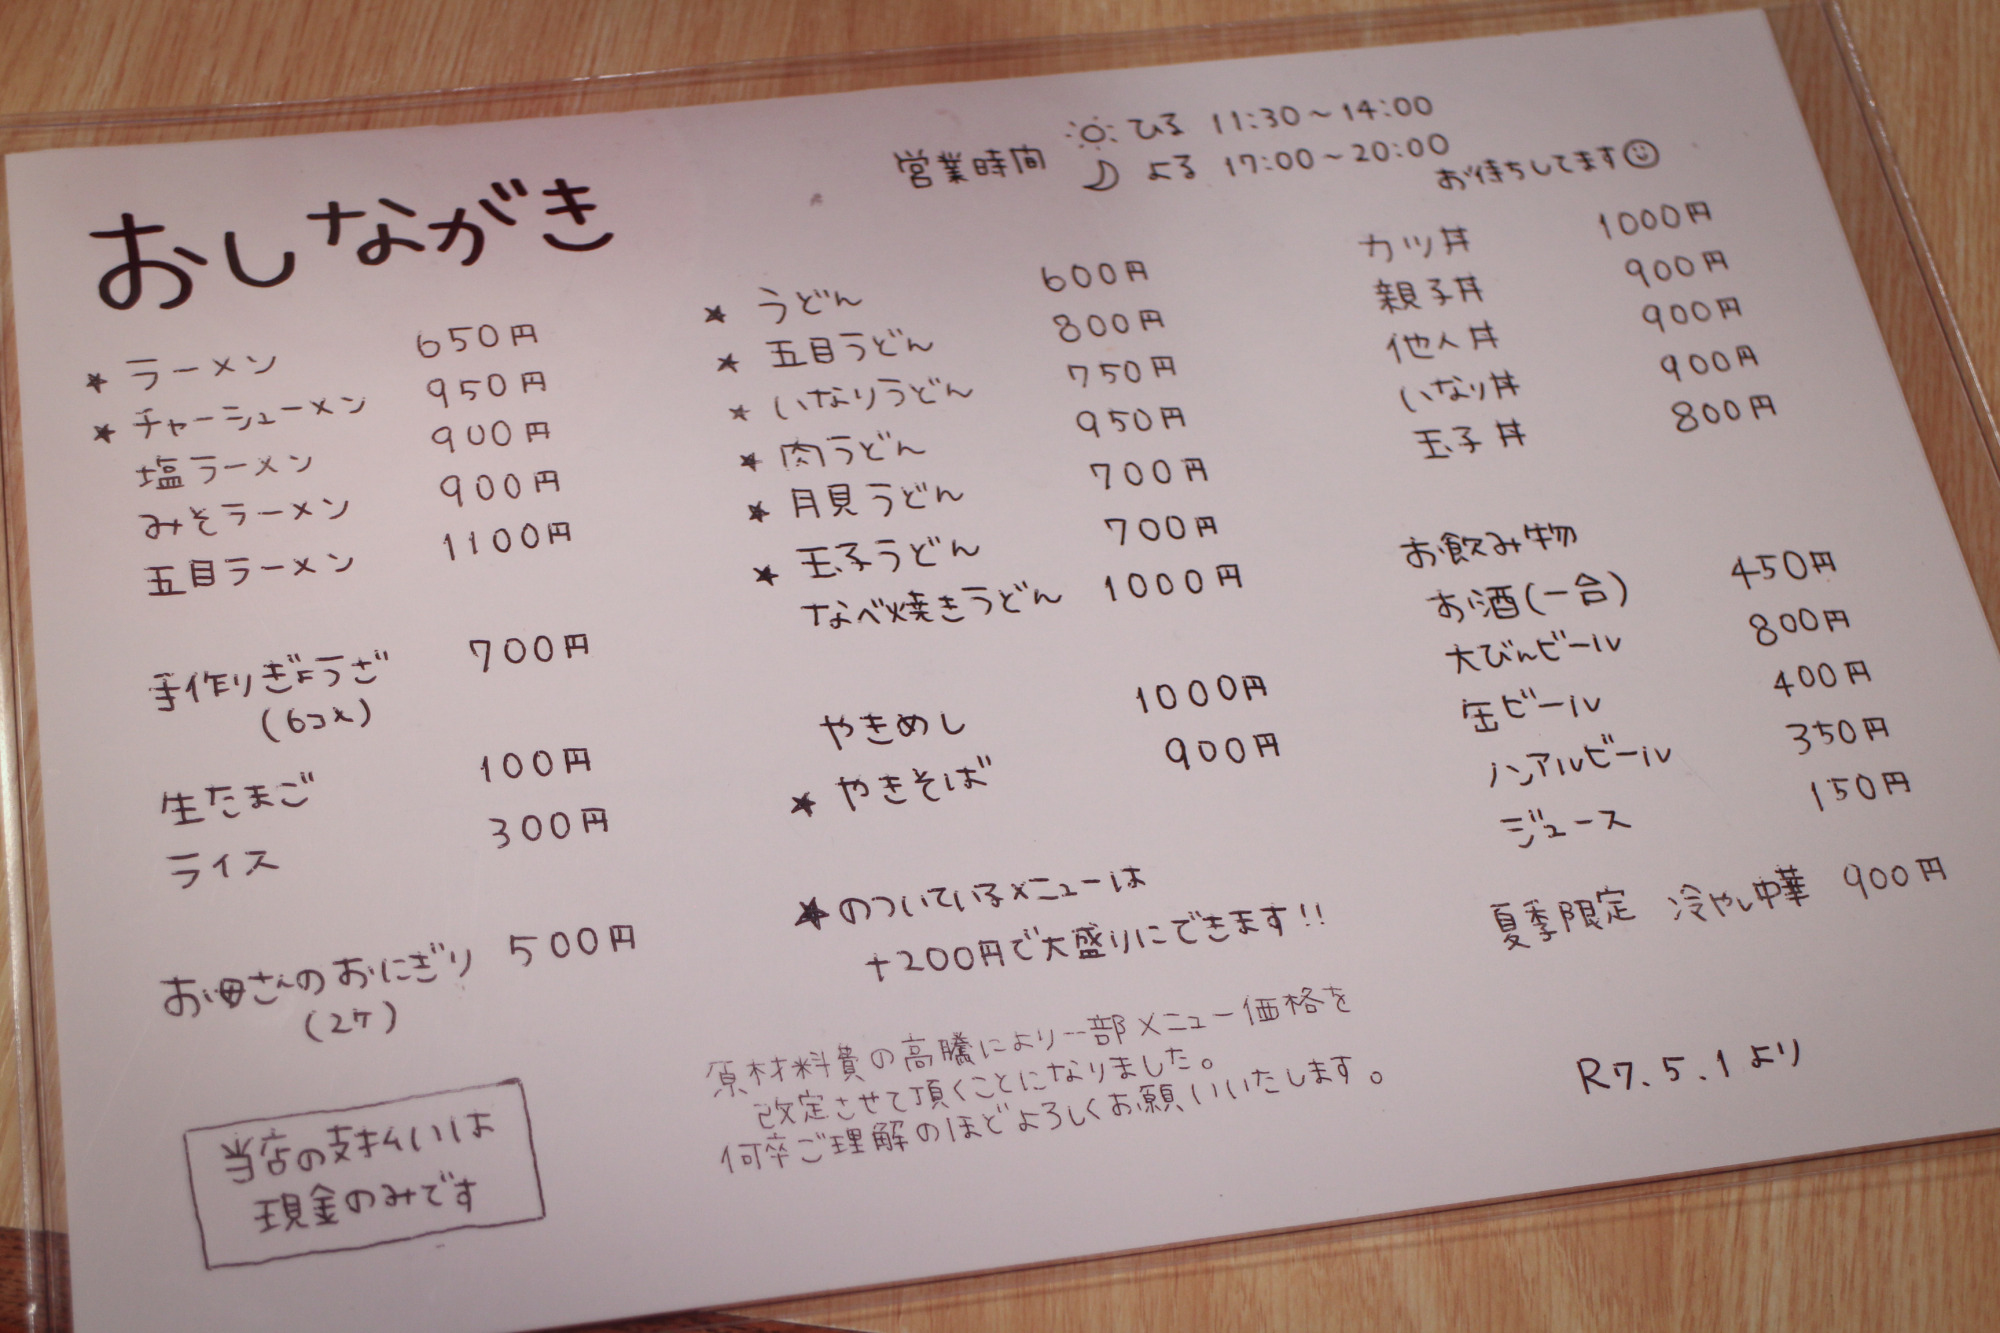 おしながき
営業時間 ひる 11:30～14:00
よる 17:00～20:00
お待ちしてます
★ ラーメン 650円
★ チャーシューメン 950円
塩ラーメン 900円
みそラーメン 900円
五目ラーメン 1100円
手作りぎょうざ 700円
(6コ入)
生たまご 100円
ライス 300円
お母さんのおにぎり 500円
(2ケ)
当店の支払いは
現金のみです
★ うどん 600円
★ 五目うどん 800円
★ いなりうどん 750円
★ 肉うどん 950円
★ 月見うどん 700円
★ 玉子うどん 700円
なべ焼きうどん 1000円
やきめし 1000円
★ やきそば 900円
★のついているメニューは
+200円で大盛りにできます!!
原材料費の高騰により一部メニュー価格を
改定させて頂くことになりました。
何卒ご理解のほどよろしくお願いいたします。
カツ丼 1000円
親子丼 900円
他人丼 900円
いなり丼 900円
玉子丼 800円
お飲み物
お酒(一合) 450円
大びんビール 800円
缶ビール 400円
ノンアルビール 350円
ジュース 150円
夏季限定 冷やし中華 900円
R7.5.1より